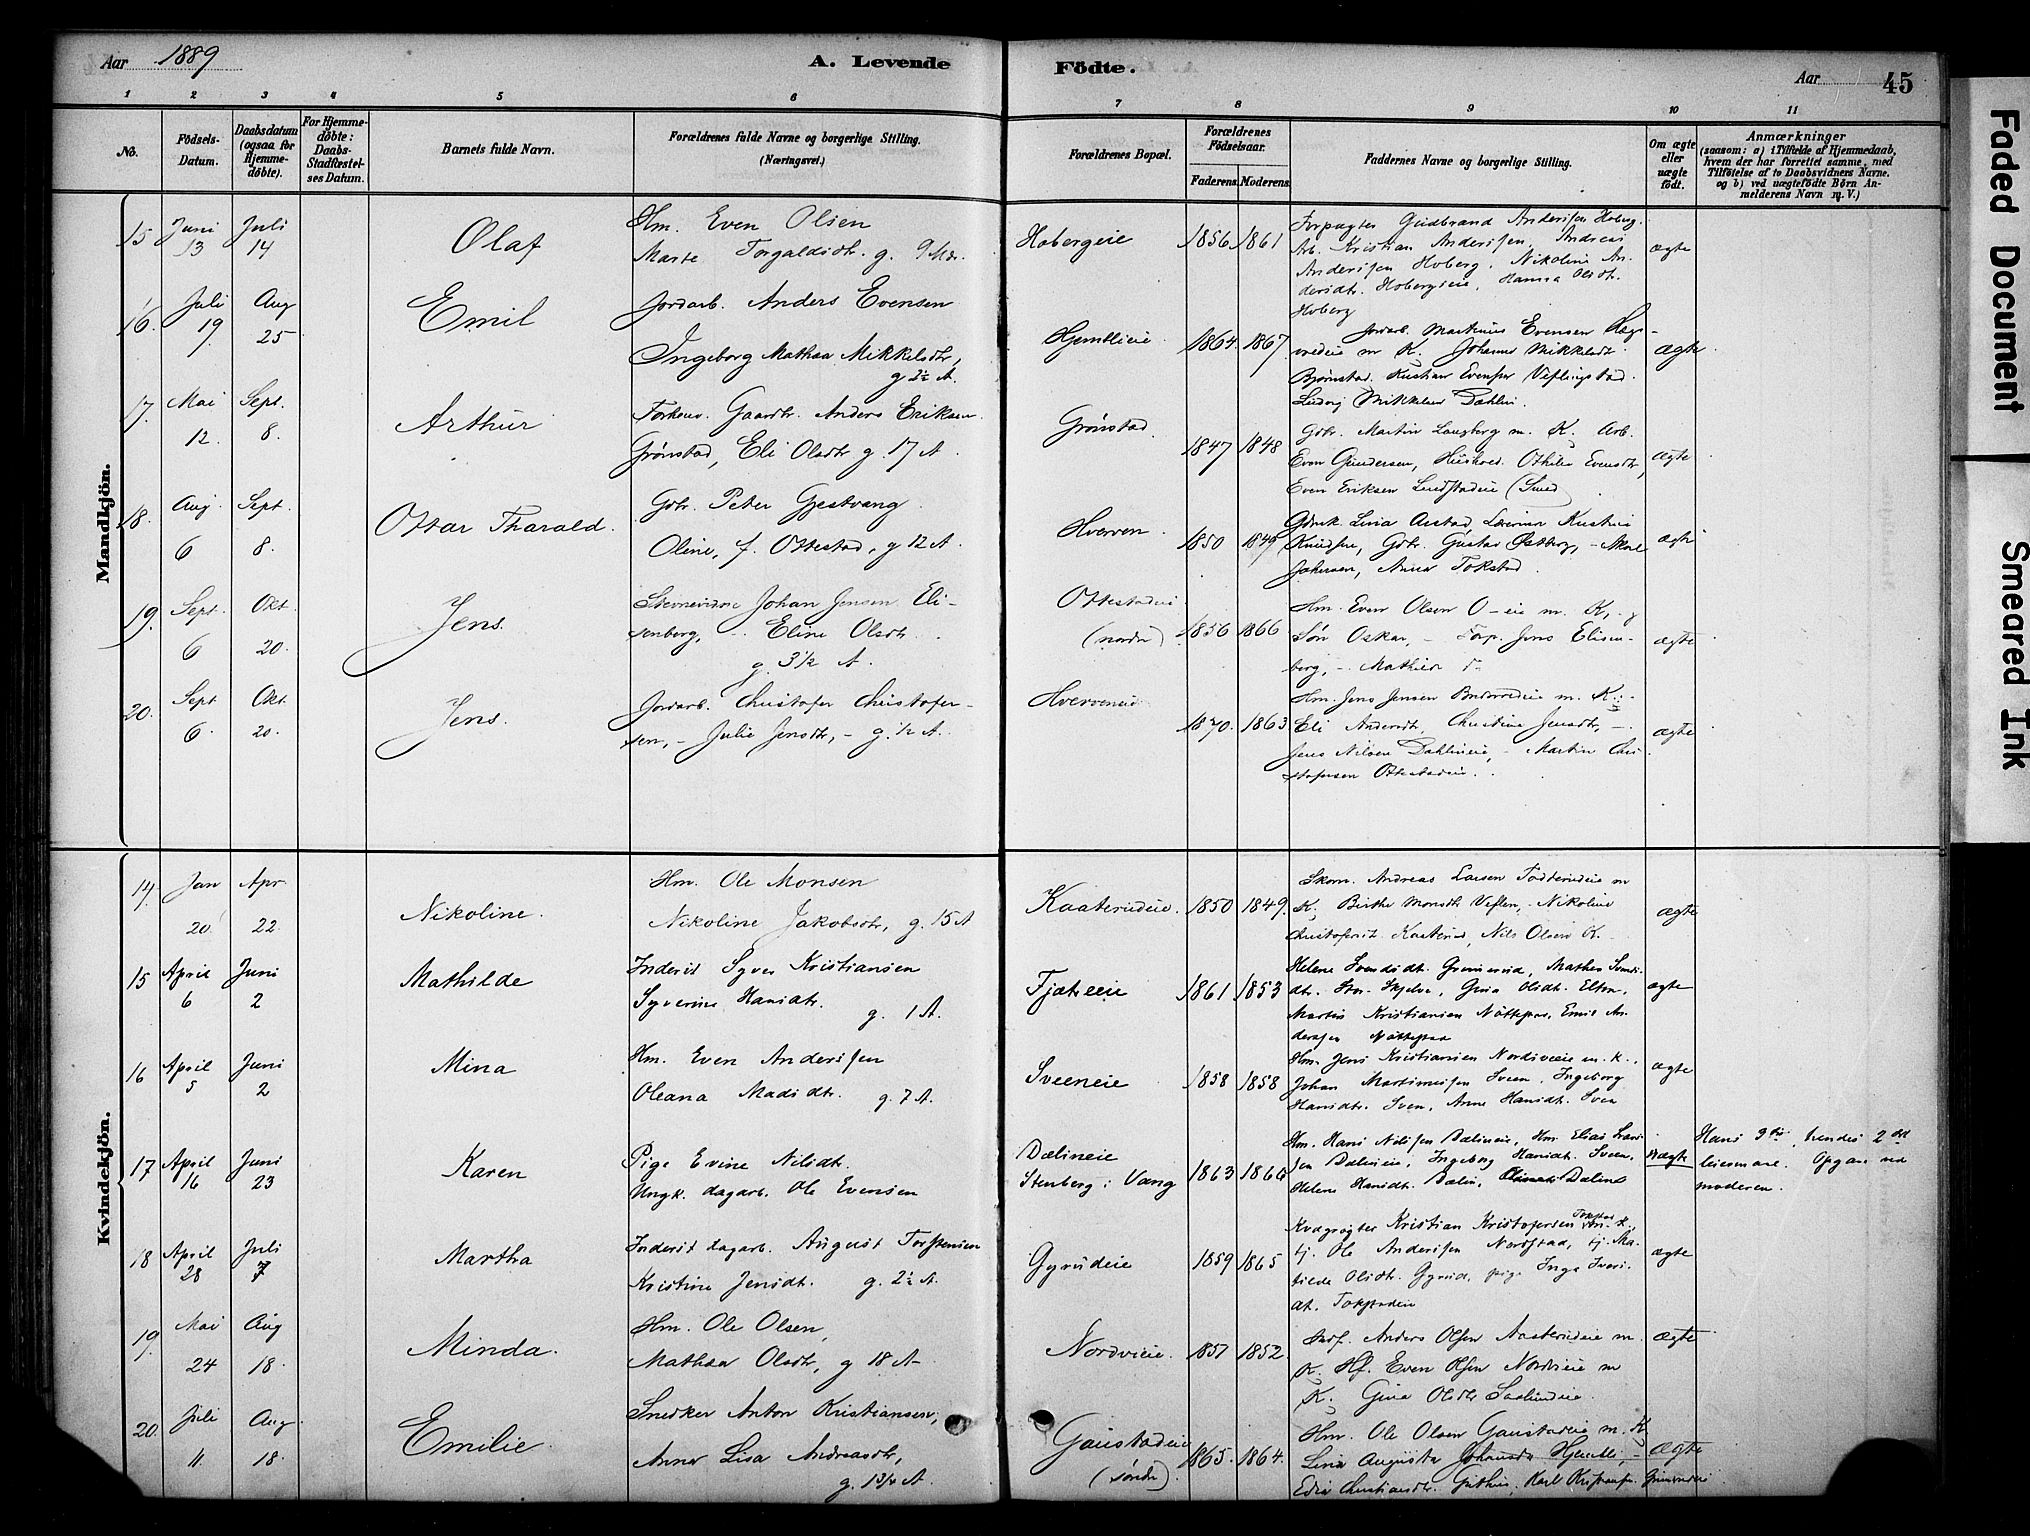 Aar 1889 A. Levende Födte. Aar 45
1 2 3 4 5 6 7 8 9 10 11
No.
Födsels-Datum.
Daabsdatum (ogsaa for Hjemme-döbte).
For Hjemme-döbte: Daabs-Stadfæstel-ses Datum.
Barnets fulde Navn.
Forældrenes fulde Navne og borgerlige Stilling. (Næringsvei.)
Forældrenes Bopæl.
Forældrenes Födselsaar.
Faderens. Moderens.
Faddernes Navne og borgerlige Stilling.
Om ægte eller uægte födt.
Anmærkninger
(saasom: a) i Tilfælde af Hjemmedaab,
hvem der har forrettet samme, med
Tilföielse af to Daabsvidners Navne.
og b) ved uægtefödte Börn An-
melderens Navn m. V.)
Mandkjön.
15 Juni 13 Juli 14 Olaf
Hm. Even Olsen
Marte Torgaldsdtr. g. 9 Mdr.
Hobergeie 1856 1861
Forpagter Gudbrand Andersen Hoberg.
Arb. Kristian Andersen, Andreas
Andersen Hoberg, Nikoline An-
dersdtr. Hobergseie, Hanna Olsdt.
Hoberg
ægte
16. Juli 19. Aug 25 Emil
Jordarb. Anders Evensen
Ingeborg Mathea Mikkelsdtr,
g 2½ A.
Hjemlieie 1864. 1867
Jordarb. Martinus Evensen
m K. Johanne Mikkelsdt.
Bjørnstad. Kristian Evensen
Ludvig Mikkelsen Dæhlin.
ægte
17. Mai 12. Sept. 8. Arthur
Gaardbr. Anders Eriksen
Grønstad, Eli Olsdtr g. 17 A.
Grønstad. 1847 1848
Gdbr. Martin Langberg m. K. Arb.
Even Gundersen, Othilie Evensdtr,
Even Eriksen (Smed)
ægte
18. Aug. 6 Sept. 8. Ottar Tharald.
Gdbr. Peter Gjestvang
Oline, f. Ottestad, g 12 A.
Hverven. 1850 1849
Gdbr. Gustav Østberg,
Anna Tokstad.
ægte
19. Sept. 6 Okt. 20. Jens.
Johan Jensen Eli-
senberg, Eline Olsdtr.
g. 3½ A.
Ottestadeie (nordre) 1856 1866
Hm. Even Olsen O-eie m. K, - g
Søn Oskar, - Forp. Jens Elisen-
berg, - Mathias
ægte
20. Sept 6. Okt. 20. Jens.
Jordarb. Christofer Christofer-
sen, - Julie Jensdtr, - g. ½ A.
Hverveneie 1870. 1863
Hm. Jens Jensen m. K.
Eli Andersdtr, Christine Jensdtr, -
Jens Nilsen Dæhlineie, - Martin Chri-
stofersen Ottestadeie.
ægte
Kvindekjön.
14. Jan 20. Apr. 22. Nikoline.
Hm. Ole Monsen
Nikoline Jakobsdtr, g. 15 A
Kaaterudeie. 1850 1849.
Skom. Andreas Larsen m
K, Birthe Monsdtr Veflen, - Nikoline
Christofersdt. Kaaterud, Nils Olsen K.
ægte
15 April 6 Juni 2 Mathilde
Inderst Syver Kristiansen
Syverine Hansdtr. g. 1 A.
Fjætreeie 1861 1853
Helene Svendsdt. Grimerud, Mathea Svends-
dtr. Skjelve, Gina Olsdt. Elton,
Martin Kristiansen Nøttestad, Emil An-
dersen Nøttestad
ægte
16 April 5 Juni 2 Mina
Hm. Even Andersen
Oleana Madsdtr. g. 7 A.
Sveeneie 1858 1858
Hm. Jens Kristiansen Nordvieie m. K.,
Johan Martinusen Sveen, Ingeborg
Hansdtr. Sven, Anne Hansdt. Sven
ægte
17 April 16 Juni 23 Karen
Pige Evine Nilsdt.
Ungk. dagarb. Ole Evensen
Dælineie
Stenberg i Vang 1863 1866
Hm. Hans Nilsen Dælineie, Hm. Elias
Dælineie, Ingeborg Hansdt. Sveen,
Helene Hansdt. Dælin, Dælin
uægte
Hans 3die, hendes 2det
leiermaal. Opgave ved
moderen.
18 April 28 Juli 7 Martha
Inderst dagarb. August Torstensen
Kristine Jensdt. g. 2½ A.
Gyrudeie 1859 1865
Kvægrøgter Kristian Kristofersen Tokstad m. K.,
tj. Ole Andersen Nordstad, tj. Ma-
tilde Olsdtr. Gyrud, pige Inga Ivers-
dt. Tokstadeie
ægte
19. Mai 24 Aug 18. Minda.
Hm. Ole Olsen,
Mathea Olsdtr, g 18 A-
Nordvieie. 1857 1852
Anders Olsen Aasterudeie m.
K. Hf. Even Olsen Nordvieie m
K. Gina Olsdtr
ægte
20. Juli 11. Aug 18. Emilie.
Snedker Anton Kristiansen,
Anne Lisa Andreasdtr,
g. 1¾ A.
Gaustadeie (søndre). 1865. 1864.
Hm. Ole Olsen Gaustadeie m. K,
Lina Augusta Johansdtr Hjemlie, -
Christiansdtr. Karl Kristiansen Grimerudeie
ægte
Faded Document
Smeared Ink